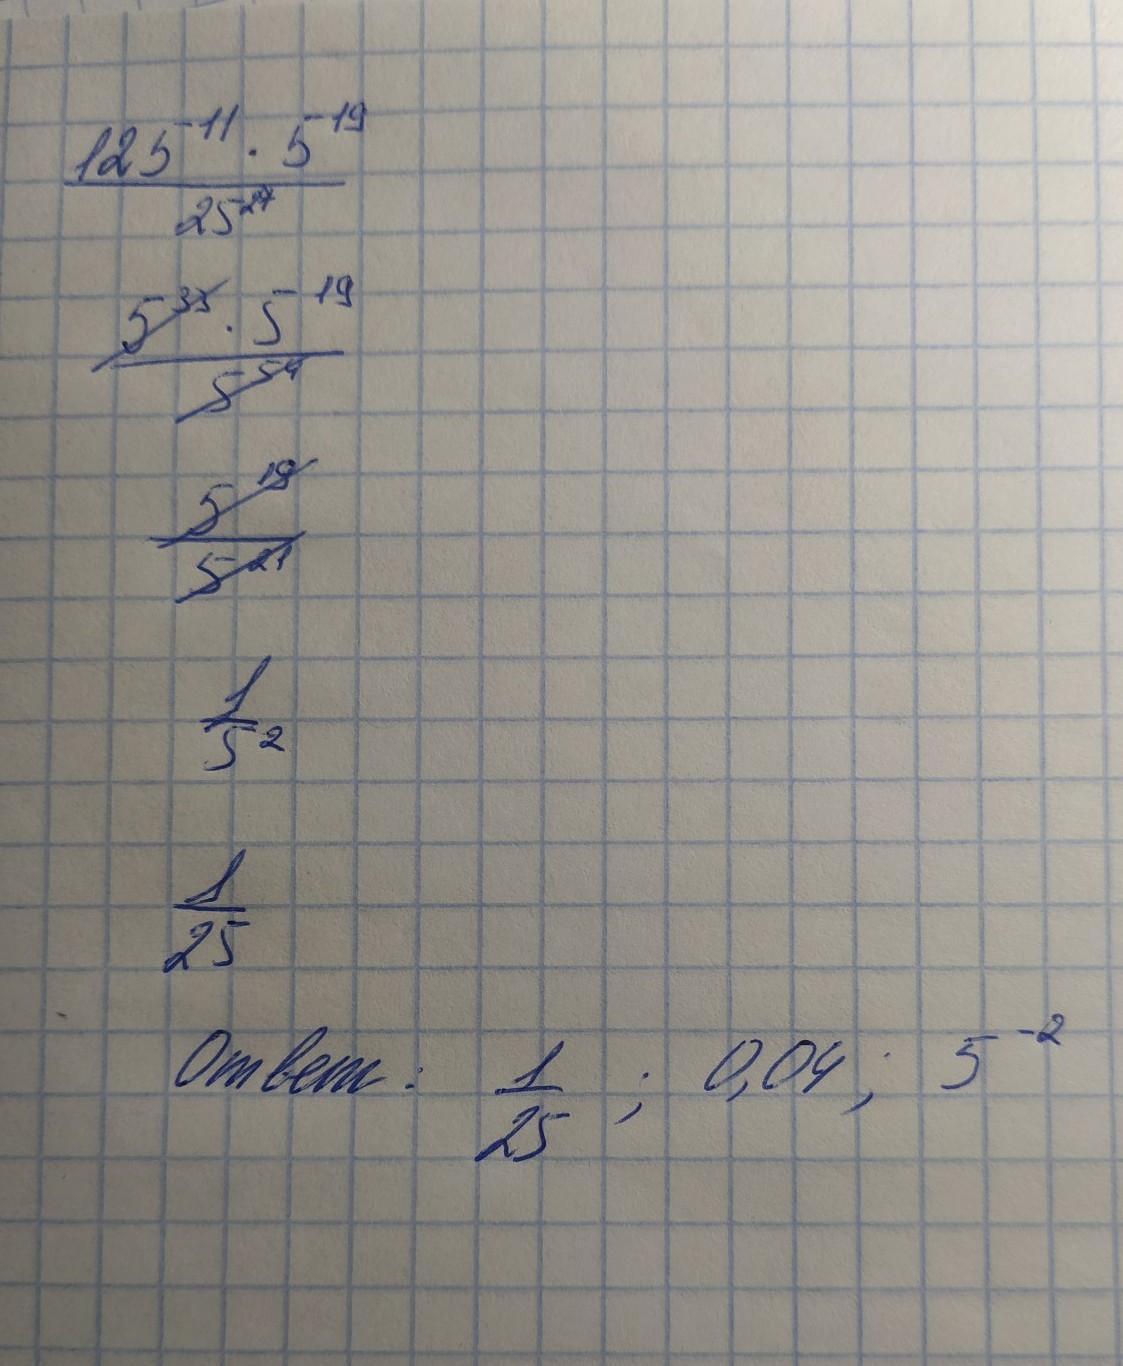 125^-11 · 5^-19
25^27
5^33 · 5^19
5^54
5^19
5^21
1
5^2
1
25
Ответ: 1/25 ; 0,04; 5^-2